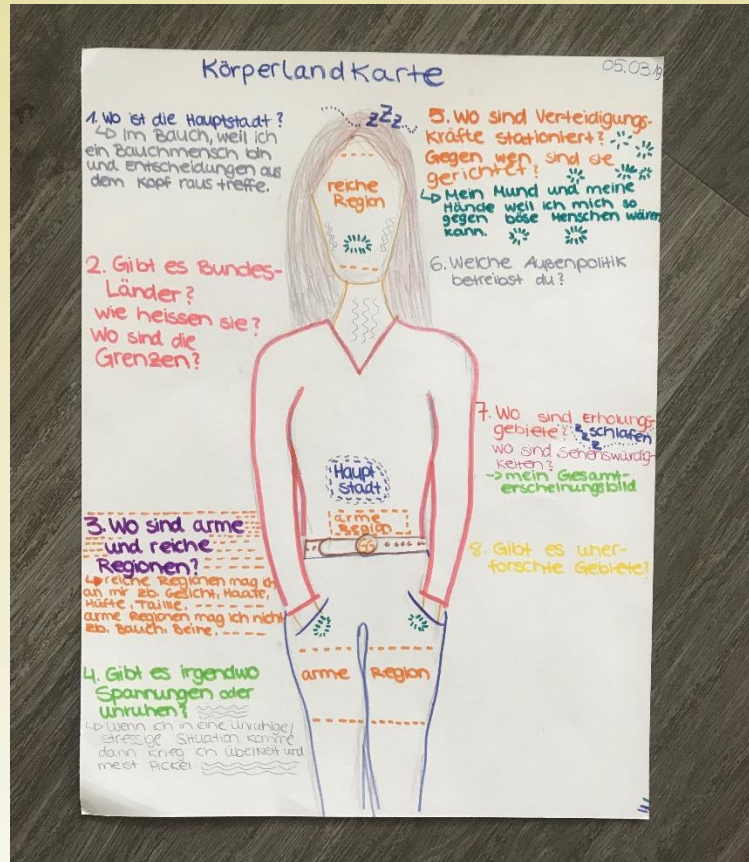 Körperlandkarte
05.03.19
1. Wo ist die Hauptstadt?
↳ Im Bauch, weil ich
ein Bauchmensch bin
und Entscheidungen aus
dem Kopf raus treffe.
2. Gibt es Bundes-
Länder?
wie heissen sie?
Wo sind die
Grenzen?
3. Wo sind arme
und reiche
Regionen?
↳ reiche Regionen mag ich
an mir zb. Gesicht, Haare,
Hüfte, Taille.
arme Regionen mag ich nicht
zb. Bauch, Beine.
4. Gibt es irgendwo
Spannungen oder
unruhen?
↳ Wenn ich in eine unruhige/
stressige Situation komme
dann krieg ich übelkeit und
meist Pickel
zZz
reiche
Region
Haupt
stadt
arme
Region
arme Region
5. Wo sind Verteidigungs-
kräfte stationiert?
Gegen wen sind sie
gerichtet?
↳ Mein Mund und meine
Hände weil ich mich so
gegen böse Menschen wären
kann.
6. Welche Außenpolitik
betreibst du?
7. Wo sind Erholungs-
gebiete? zzz schlafen
wo sind Sehenswürdig-
keiten?
-> mein Gesamt-
erscheinungsbild
8. Gibt es uner-
forschte Gebiete?